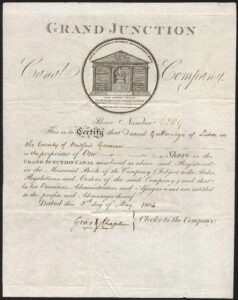 GRAND JUNCTION
Canal Company.
Share Number 6209
This is to Certify that Daniel Gutteridge of Luton in
the County of Bedford Yeoman
is the proprietor of One Share in the
GRAND JUNCTION CANAL numbered as above and Registered
in the Memorial Book of the Company Subject to the Rules,
Regulations and Orders of the said Company; and that
his Executors, Administrators and Assigns are intitled
to the profits and Advantages thereof
Dated this 3rd day of May 1804
Gray &
Clerks to the Company